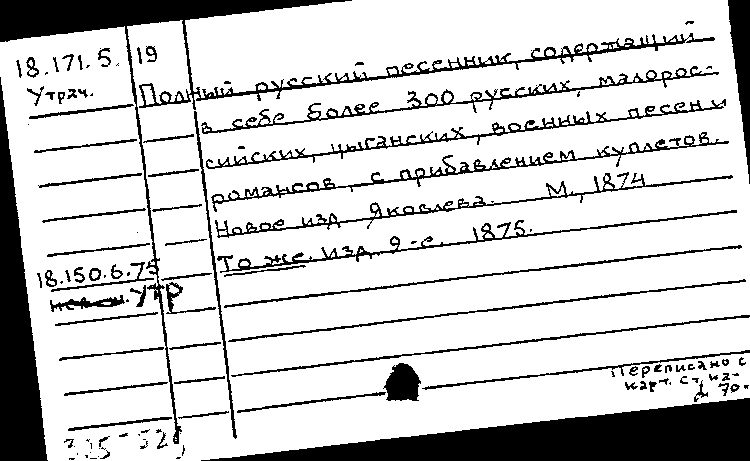 18.171.5. 19
Утрач. Полный русский песенник, содержащий
в себе более 300 русских, малорос-
сийских, цыганских, военных песен и
романсов, с прибавлением куплетов.
Новое изд Яковлева. М., 1874
То же. Изд. 9-е. 1875.
18.150.6.75
УТР
Переписано с
карт. Ст. ка-
70-
325-529